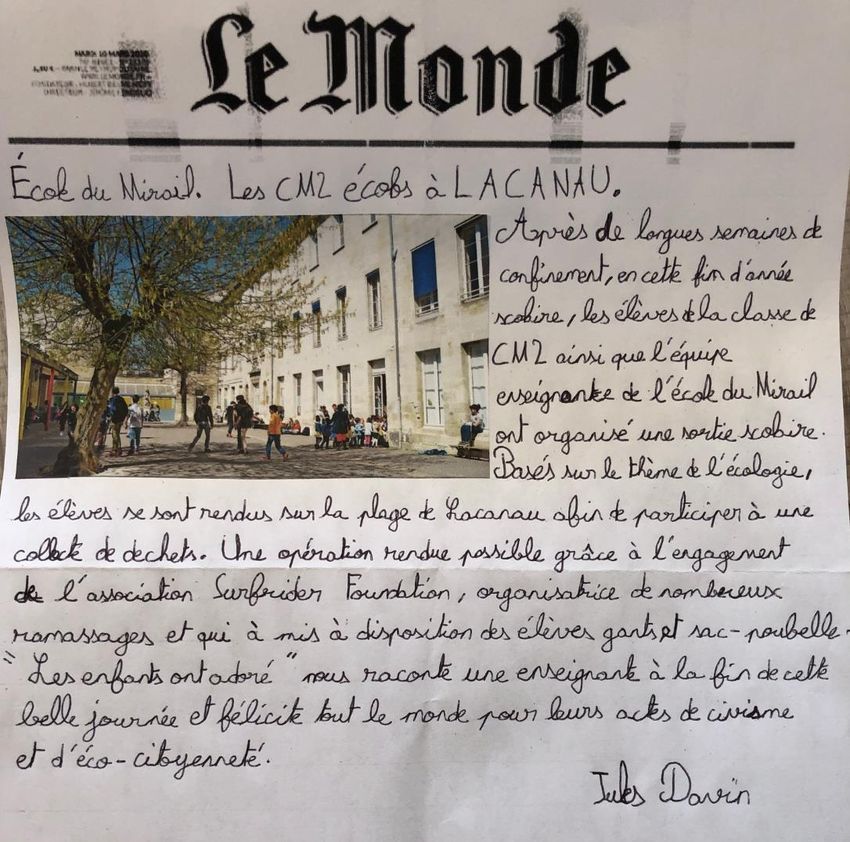 MARDI 10 MARS 2020
Le Monde
École du Mirail. Les CM2 écolos à LACANAU.
Après de longues semaines de
confinement, en cette fin d'année
scolaire, les élèves de la classe de
CM2 ainsi que l'équipe
enseignante de l'école du Mirail
ont organisé une sortie scolaire.
Basés sur le thème de l'écologie,
les élèves se sont rendus sur la plage de Lacanau afin de participer à une
collecte de dechets. Une opération rendue possible grâce à l'engagement
de l'association Surfrider Foundation, organisatrice de nombreux
ramassages et qui à mis à disposition des élèves gants et sac-poubelle.
"Les enfants ont adoré" nous raconte une enseignante à la fin de cette
belle journée et félicite tout le monde pour leurs actes de civisme
et d'éco-citoyenneté.
Jules Davin